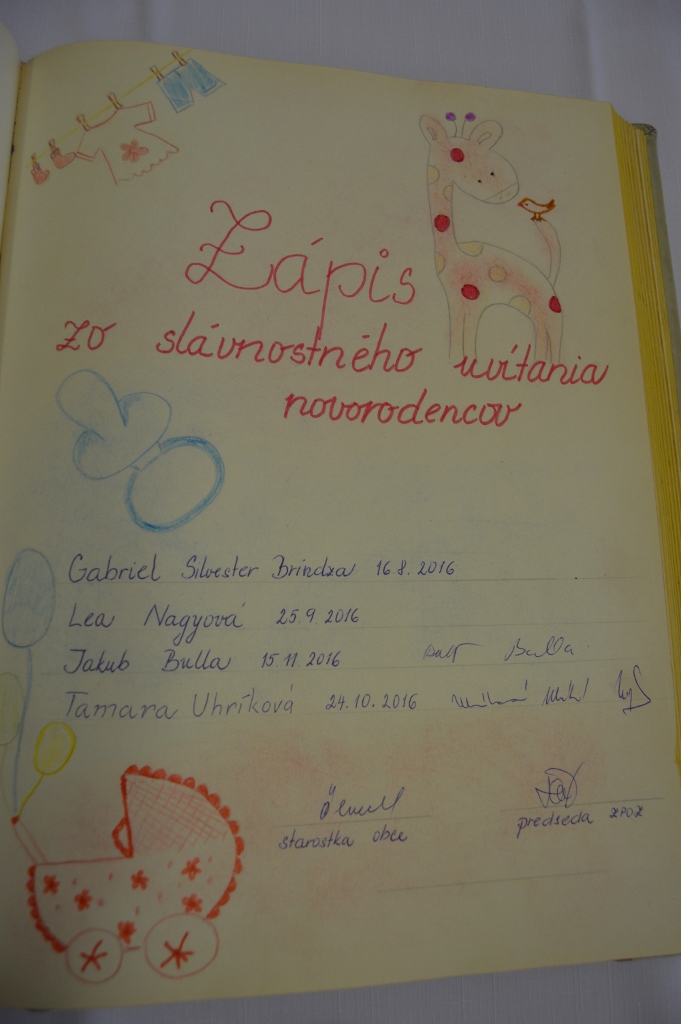 Zápis
zo slávnostného uvítania
novorodencov
Gabriel Silvester Brindza 16.8.2016
Lea Nagyová 25.9.2016
Jakub Bulla 15.11.2016 Bulla
Tamara Uhríková 24.10.2016
starostka obce
predseda ZPOZ